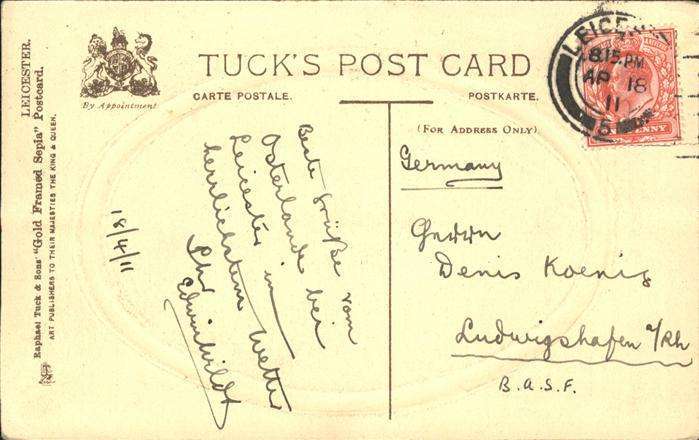 LEICESTER.
Raphael Tuck & Sons' "Gold Framed Sepia" Postcard.
ART PUBLISHERS TO THEIR MAJESTIES THE KING & QUEEN.
By Appointment
TUCK'S POST CARD
CARTE POSTALE.
POSTKARTE.
(FOR ADDRESS ONLY)
8.15.PM
AP 18
11
5
PENNY
18/4/11
Beste Grüße vom
Osterlande bei
Leicester in
herrlichstem Wetter
Ihr
Germany
Herrn
Denis Koenig
Ludwigshafen a/Rh
B.A.S.F.